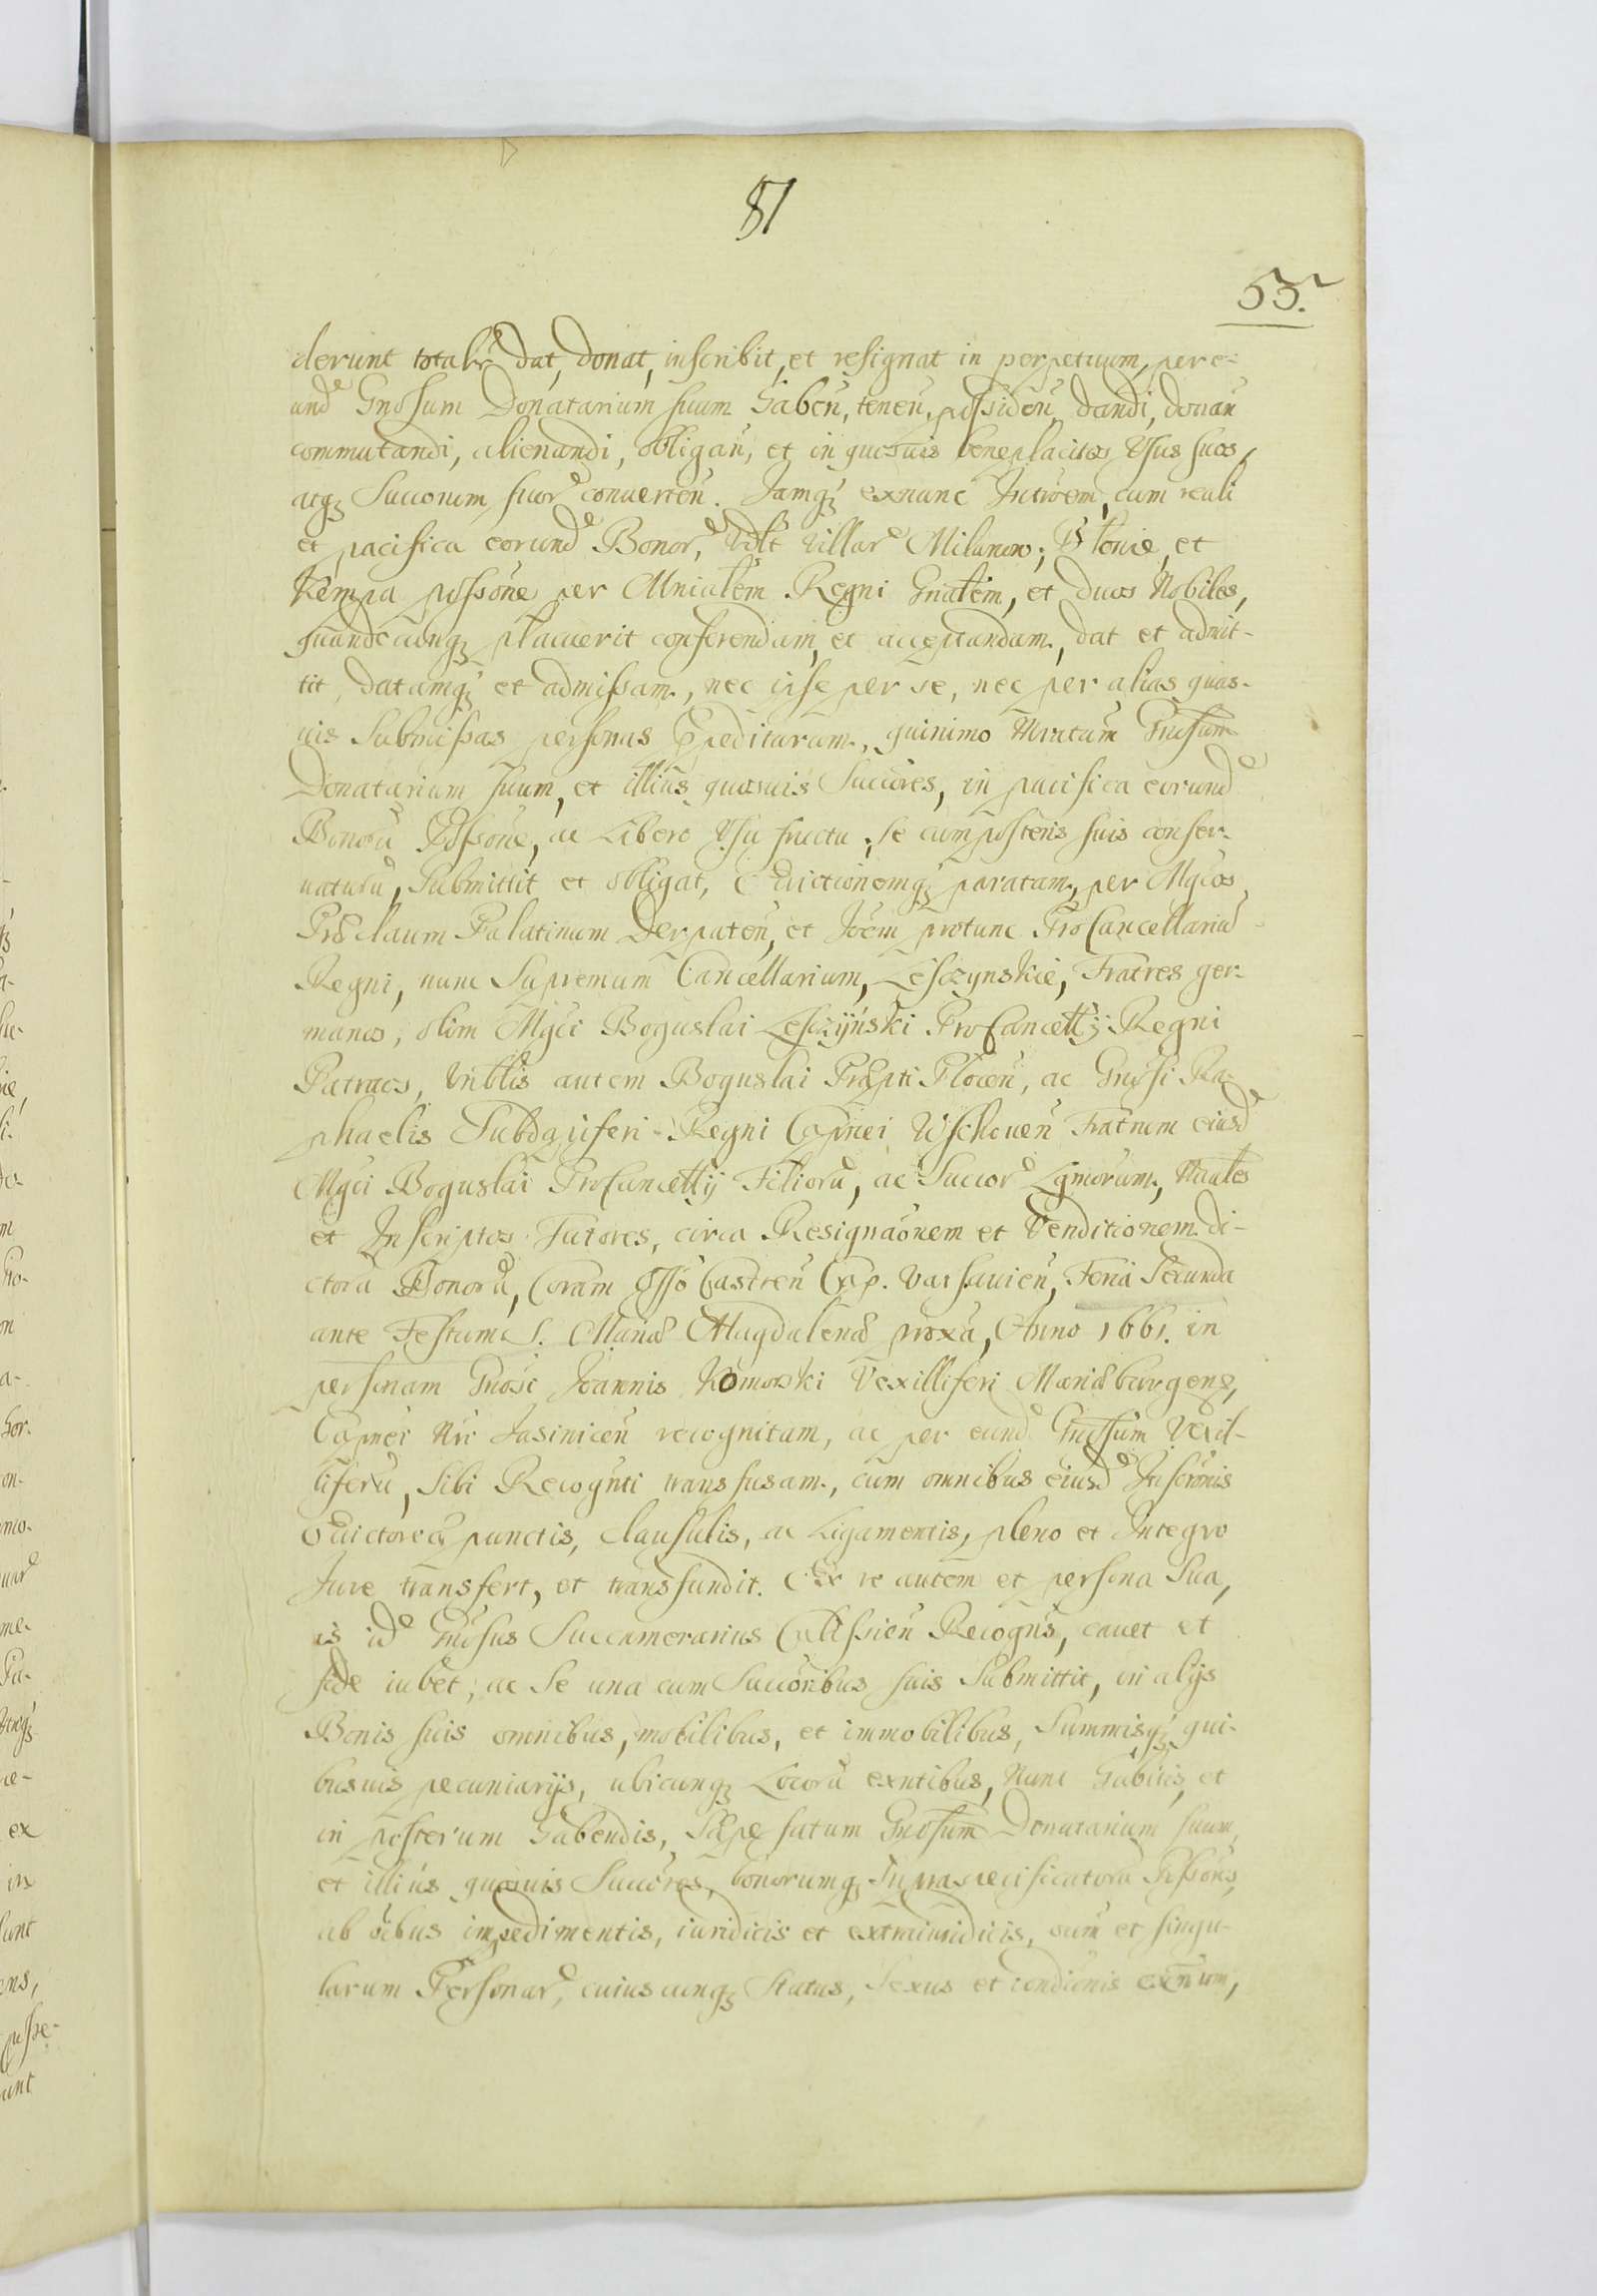 81
53.
derunt totalr dat, donat, inscribit, et resignat in perpetuum, per e-
und Gnosum Donatarium suum haben, tenen, possiden, dandi, donan
commutandi, alienandi, obligan, et in quosuis beneplacitos Usus suos,
atq Succorum suor conuerten. Jamq exnunc Intromem, cum reali
et pacifica eorund Bonor, Vdlt Villar Milanow, Błonie, et
Kempa possone per Mnialem Regni Gnalem, et duos Nobiles,
quandocunq placuerit conferendam, et acceptandam, dat et admit-
tit, datamq et admissam, nec ipse per se, nec per alias quas-
uis Submissas personas Jmpediturum, quinimo Mratum Gnosum
Donatarium suum, et illius quosuis Succores, in pacifica eorund
Bonoru Possone, ac Libero Usu fructu, se cum posteris suis conser-
uaturu, Submittit et obligat, Euictionemq paratam, per Mgcos
Prælaum Palatinum Derpaten, et Joem protunc ProCancellariu
Regni, nunc Supremum Cancellarium, Lesczynskie, Fratres ger-
manos, olim Mgci Boguslai Lesczynski ProCancellij Regni
Patruos, Vnblis autem Boguslai Præpti Plocen, ac Gnosi Ra-
phaelis Subdapiferi Regni Capnei Wschouen Fratrum eiusd
Mgci Boguslai ProCancellij Filioru, ac Succor Lgmorum, Nrales
et Inscriptos Tutores, circa Resignaonem et Venditionem di-
ctoru Bonoru, Coram Offo Castren Cap. Varsauien, Feria Secunda
ante Festum S. Mariæ Magdalenæ proxa, Anno 1661. in
personam Gnosi Joannis Komorski Vexilliferi Mariæburgens,
Capnei Nri Jasinicen recognitam, ac per eund Gnosum Vexil-
liferu, sibi Recognti transfusam, cum omnibus eiusd Inscronis
euictoreis punctis, clausulis, ac Ligamentis, pleno et Integro
Jure transfert, et transfundit. Ex re autem et persona Sua,
is id Gnosus Succamerarius Calissien Recogns, cauet et
fide iubet, ac Se una cum Succoribus suis Submittit, in alijs
Bonis suis omnibus, mobilibus, et immobilibus, Summisq qui-
busuis pecuniarijs, ubicunq Locoru exntibus, Nunc habitis, et
in posterum habendis, Sæpe fatum Gnosum Donatarium suum,
et illius quosuis Succores, bonorumq Supraspecificatoru Possons,
ab oibus impedimentis, iuridicis et extraiuridicis, oum et singu-
larum Personar, cuiuscunq Status, Sexus et condionis exnum,